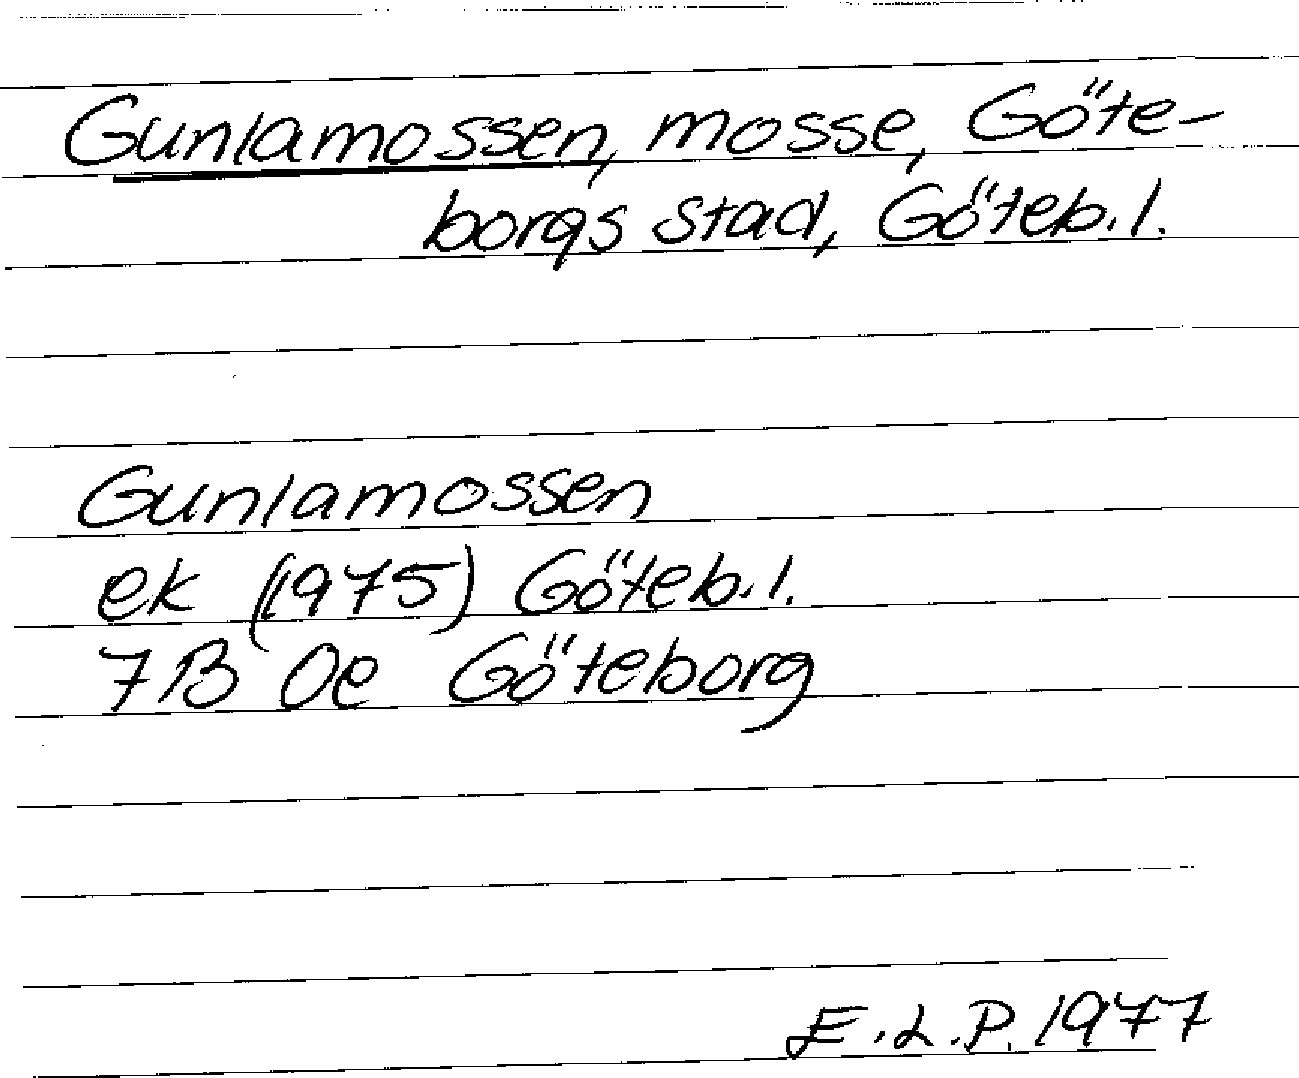 Gunlamossen, mosse, Göte-
borgs stad, Göteb.l.
Gunlamossen
ek (1975) Göteb.l.
7B 0e Göteborg
E.L.P. 1977